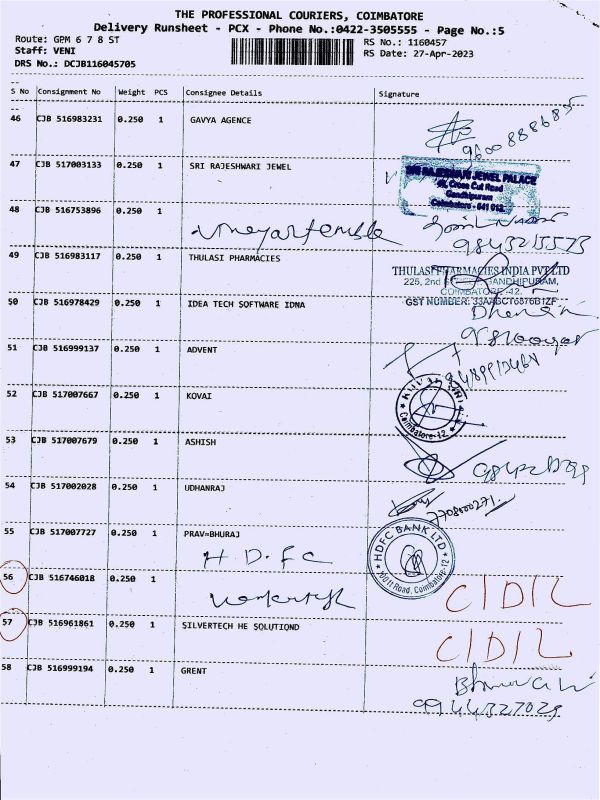 THE PROFESSIONAL COURIERS, COIMBATORE
Delivery Runsheet - PCX - Phone No.:0422-3505555 - Page No.:5
Route: GPM 6 7 8 ST
RS No.: 1160457
Staff: VENI
RS Date: 27-Apr-2023
DRS No.: DCJB116045705
S No Consignment No Weight PCS Consignee Details Signature
46 CJB 516983231 0.250 1 GAVYA AGENCE
9600888685
47 CJB 517003133 0.250 1 SRI RAJESHWARI JEWEL
SRI RAJESWARI JEWEL PALACE
Cross Cut Road
Gandhipuram
Coimbatore - 641 012.
48 CJB 516753896 0.250 1
9843215573
49 CJB 516983117 0.250 1 THULASI PHARMACIES
THULASI PHARMACIES INDIA PVT LTD
225, 2nd GANDHIPURAM,
COIMBATORE -42.
GST NUMBER: 33AABCT6876B1ZF
50 CJB 516978429 1 0.250 1 IDEA TECH SOFTWARE IDNA
51 CJB 516999137 0.250 1 ADVENT
52 CJB 517007667 0.250 1 KOVAI
Coimbatore-12
53 CJB 517007679 0.250 1 ASHISH
54 CJB 517002028 0.250 1 UDHANRAJ
7708000271.
55 CJB 517007727 0.250 1 PRAV=BHURAJ
H.D.FC
HDFC BANK LTD
100 ft Road, Coimbatore-12
56 CJB 516746018 0.250 1
C/D/L
57 CJB 516961861 0.250 1 SILVERTECH HE SOLUTIOND
C/D/L
58 CJB 516999194 0.250 1 GRENT
9944327029